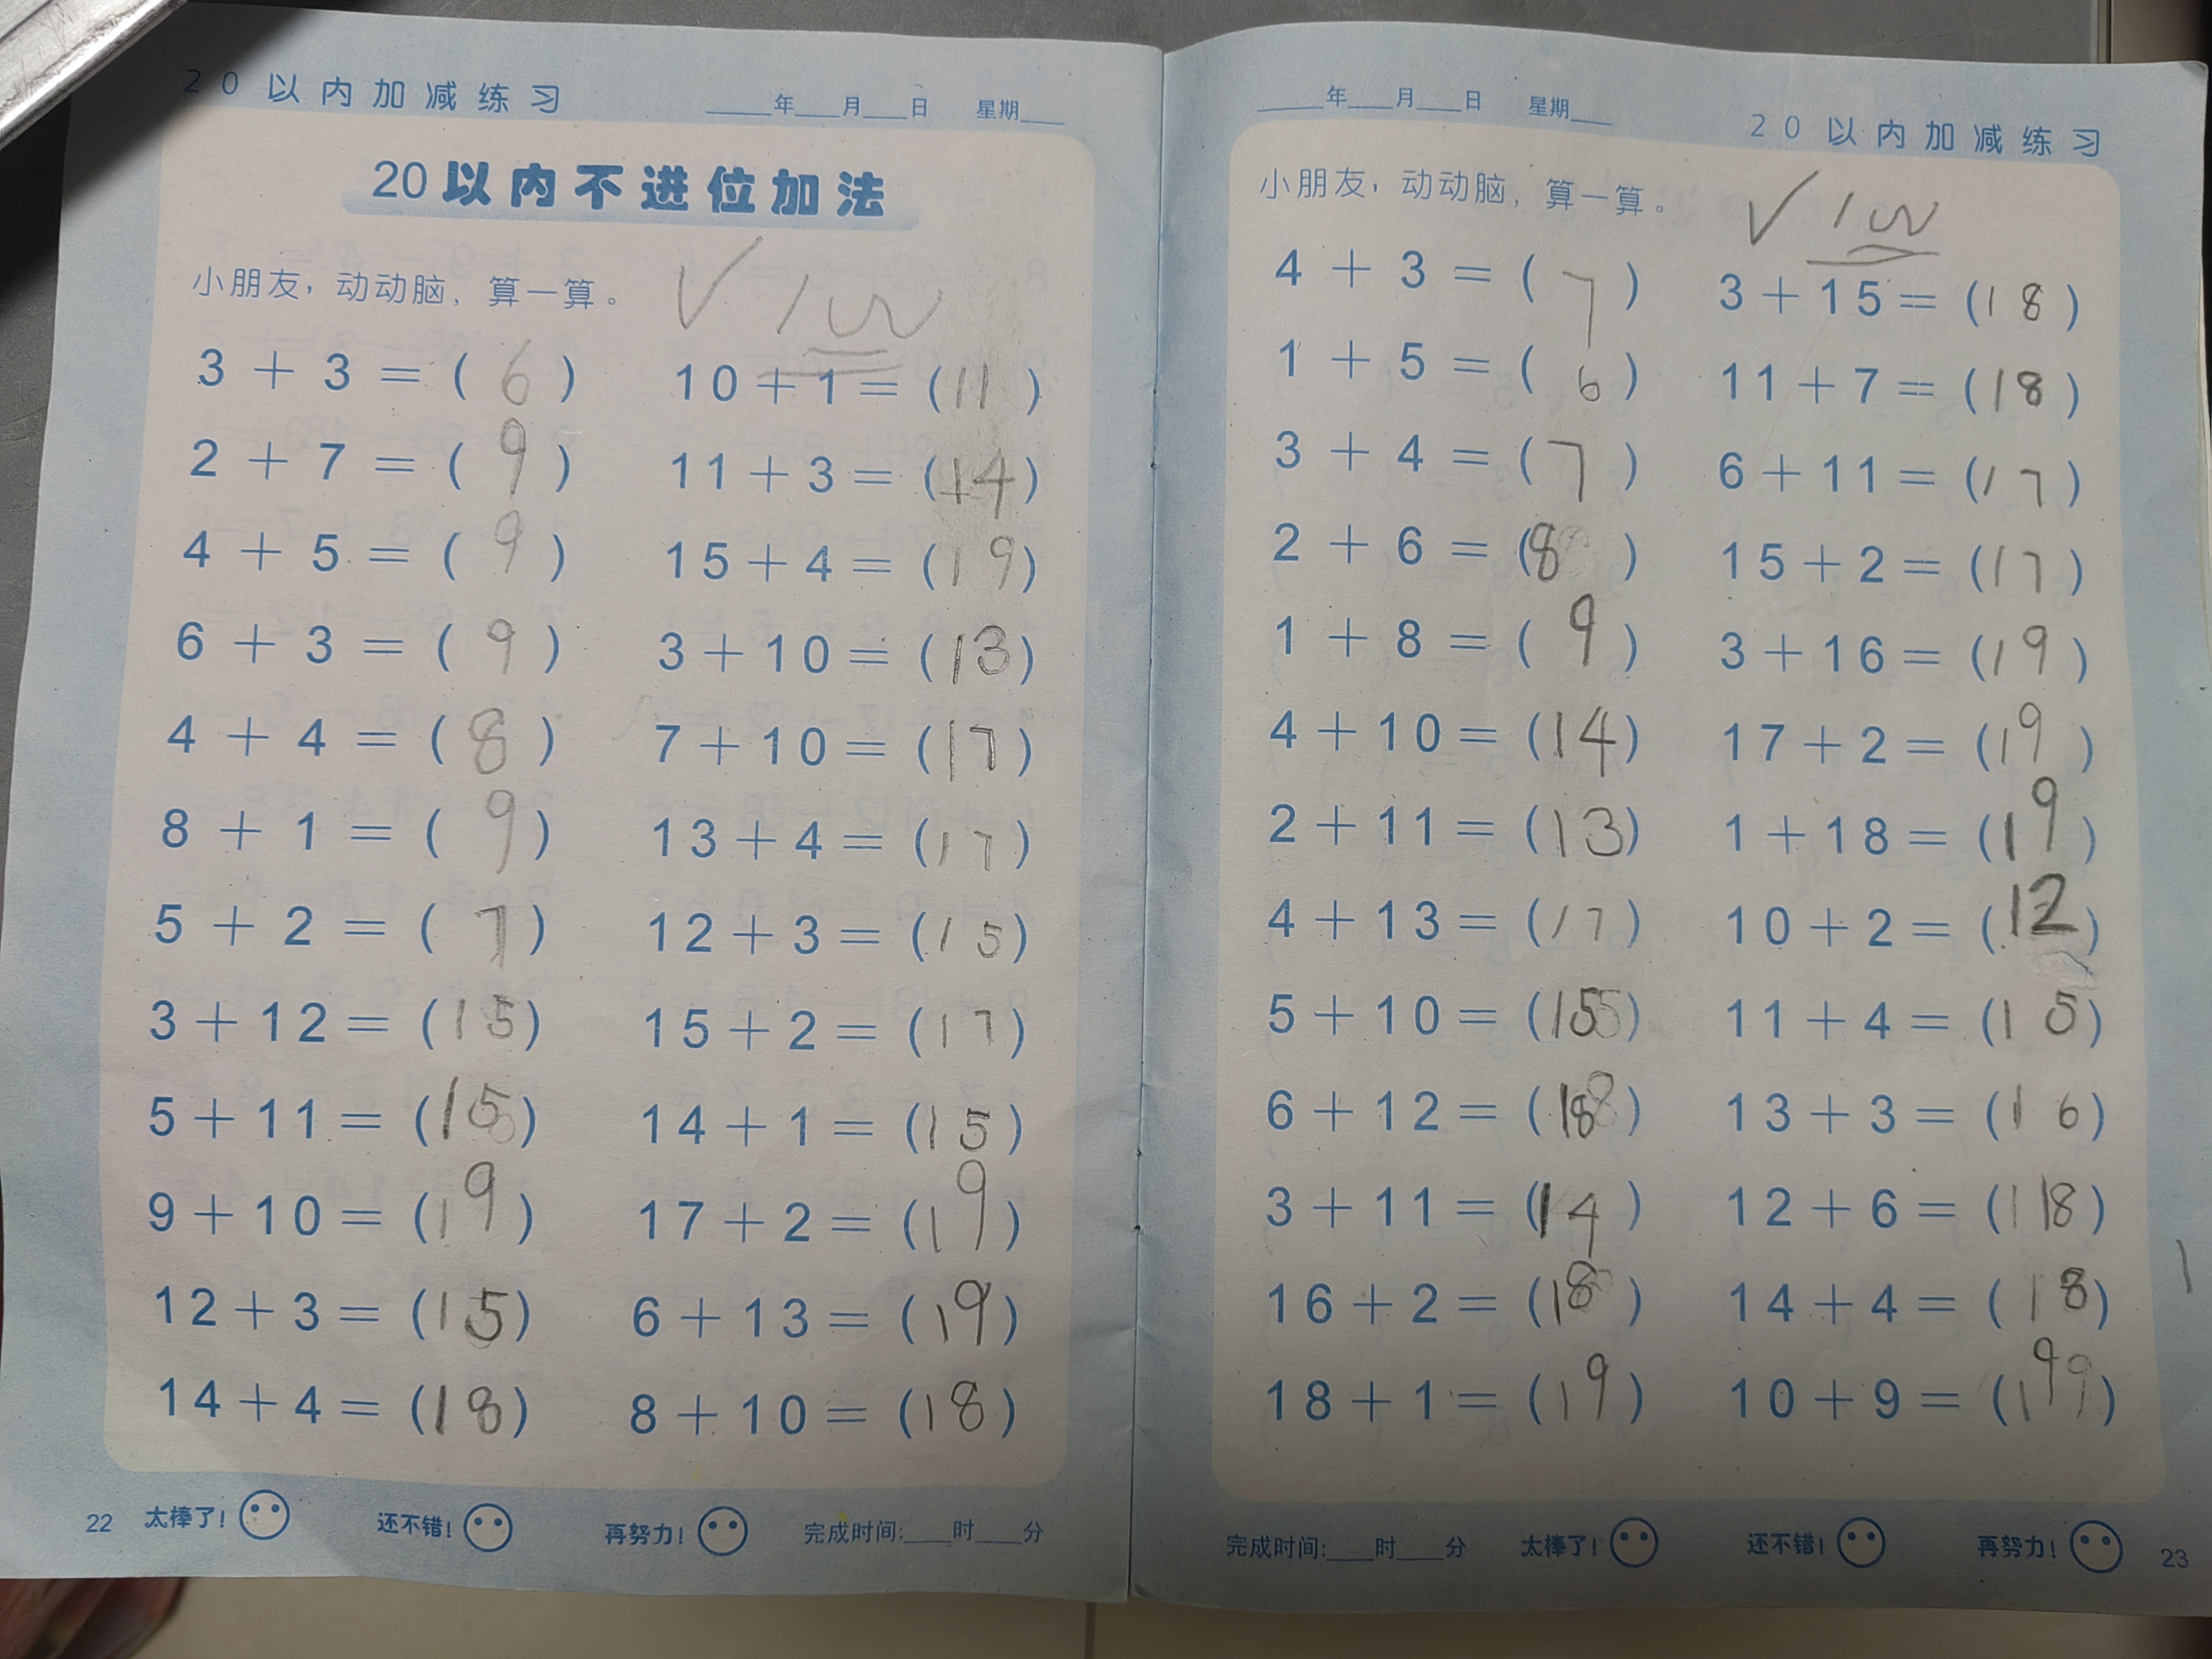 20以内加减练习 ____年___月___日 星期___
20以内不进位加法
小朋友，动动脑，算一算。
✓ 100
3 + 3 = ( 6 ) 10 + 1 = ( 11 )
2 + 7 = ( 9 ) 11 + 3 = ( 14 )
4 + 5 = ( 9 ) 15 + 4 = ( 19 )
6 + 3 = ( 9 ) 3 + 10 = ( 13 )
4 + 4 = ( 8 ) 7 + 10 = ( 17 )
8 + 1 = ( 9 ) 13 + 4 = ( 17 )
5 + 2 = ( 7 ) 12 + 3 = ( 15 )
3 + 12 = ( 15 ) 15 + 2 = ( 17 )
5 + 11 = ( 15 ) 14 + 1 = ( 15 )
9 + 10 = ( 19 ) 17 + 2 = ( 19 )
12 + 3 = ( 15 ) 6 + 13 = ( 19 )
14 + 4 = ( 18 ) 8 + 10 = ( 18 )
22 太棒了! 还不错! 再努力! 完成时间:___时___分
____年___月___日 星期___ 20以内加减练习
小朋友，动动脑，算一算。
✓ 100
4 + 3 = ( 7 ) 3 + 15 = ( 18 )
1 + 5 = ( 6 ) 11 + 7 = ( 18 )
3 + 4 = ( 7 ) 6 + 11 = ( 17 )
2 + 6 = ( 8 ) 15 + 2 = ( 17 )
1 + 8 = ( 9 ) 3 + 16 = ( 19 )
4 + 10 = ( 14 ) 17 + 2 = ( 19 )
2 + 11 = ( 13 ) 1 + 18 = ( 19 )
4 + 13 = ( 17 ) 10 + 2 = ( 12 )
5 + 10 = ( 15 ) 11 + 4 = ( 15 )
6 + 12 = ( 18 ) 13 + 3 = ( 16 )
3 + 11 = ( 14 ) 12 + 6 = ( 118 )
16 + 2 = ( 18 ) 14 + 4 = ( 18 )
18 + 1 = ( 19 ) 10 + 9 = ( 199 )
完成时间:___时___分 太棒了! 还不错! 再努力! 23